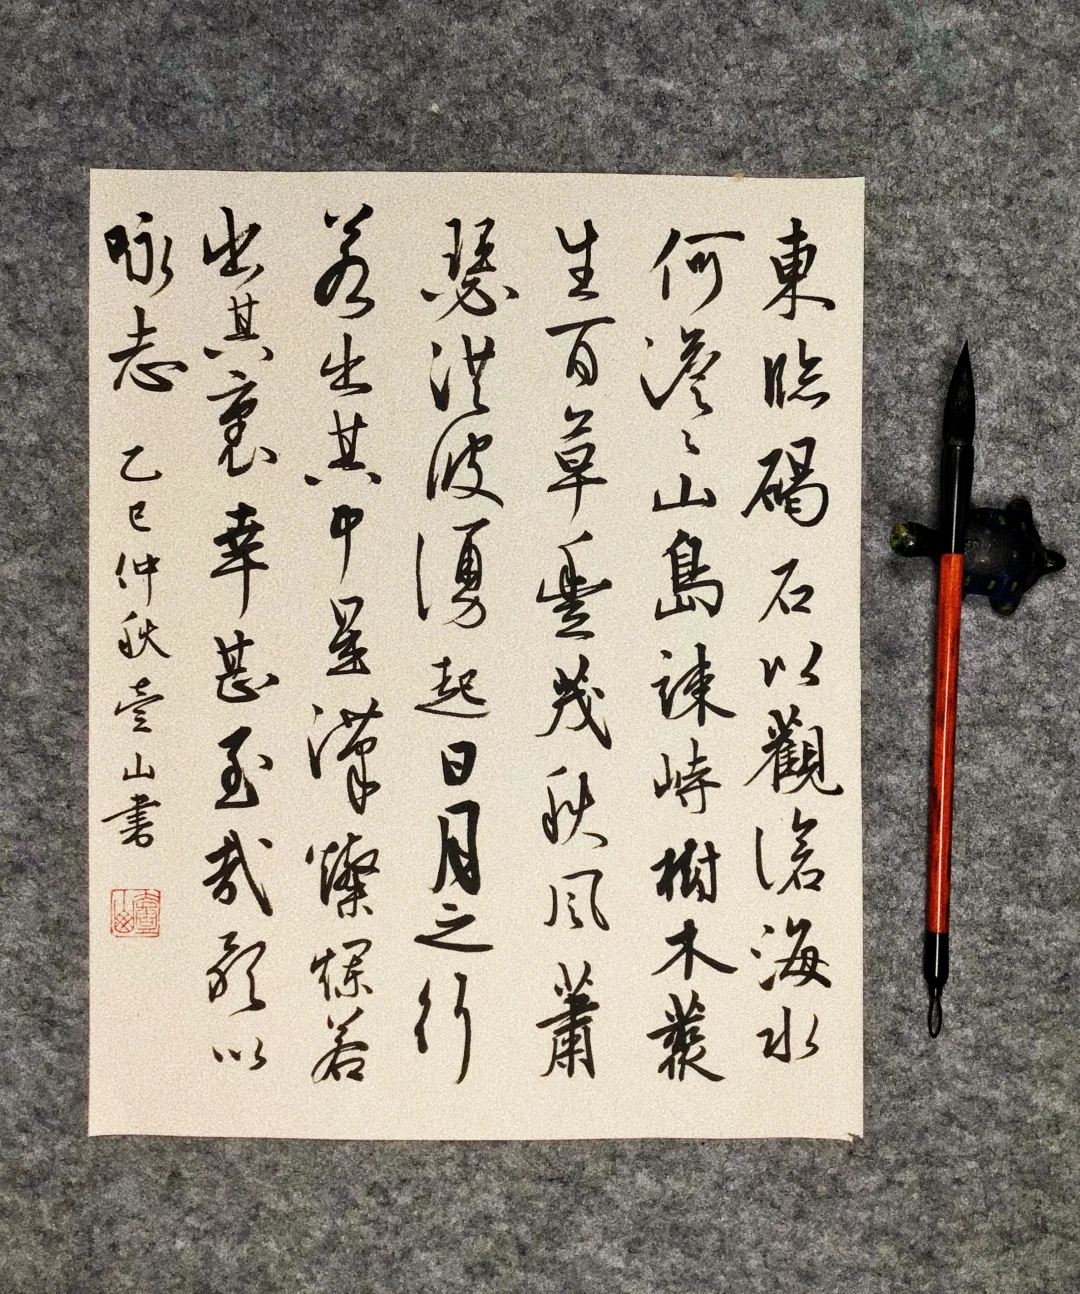 東臨碣石以觀滄海水
何澹〻山島竦峙樹木叢
生百草豐茂秋風蕭
瑟洪波湧起日月之行
若出其中星漢燦爛若
出其裏幸甚至哉歌以
咏志 乙巳仲秋壹山书